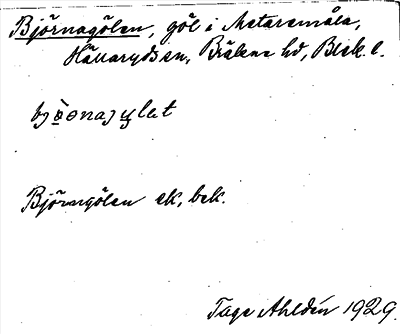 Björnagölen, göl i Metaremåla,
Hällaryds sn, Bräkne hd, Blek. l.
Björngölen ek, bek.
Tage Ahldén 1929.